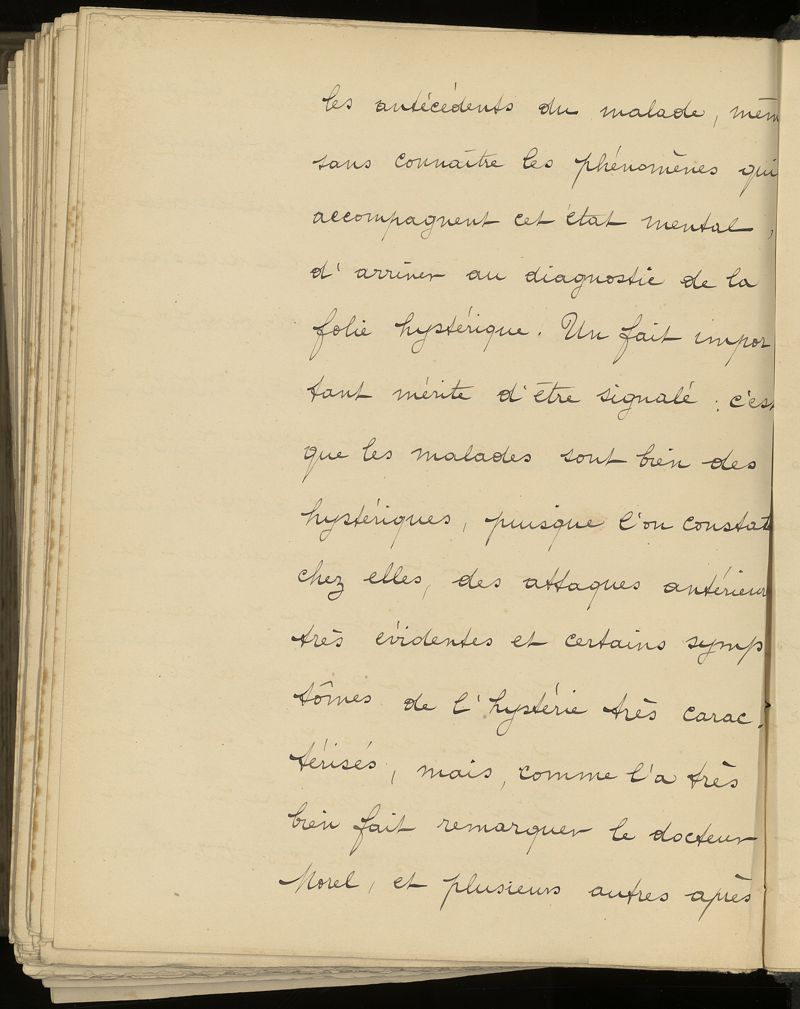 les antécédents du malade, mêm
sans connaître les phénomènes qui
accompagnent cet état mental,
d'arriver au diagnostic de la
folie hystérique. Un fait impor
tant mérite d'être signalé : c'est
que les malades sont bien des
hystériques, puisque l'on constat
chez elles, des attaques antérieur
très évidentes et certains symp
tômes de l'hystérie très carac-
térisés, mais, comme l'a très
bien fait remarquer le docteur
Morel, et plusieurs autres après